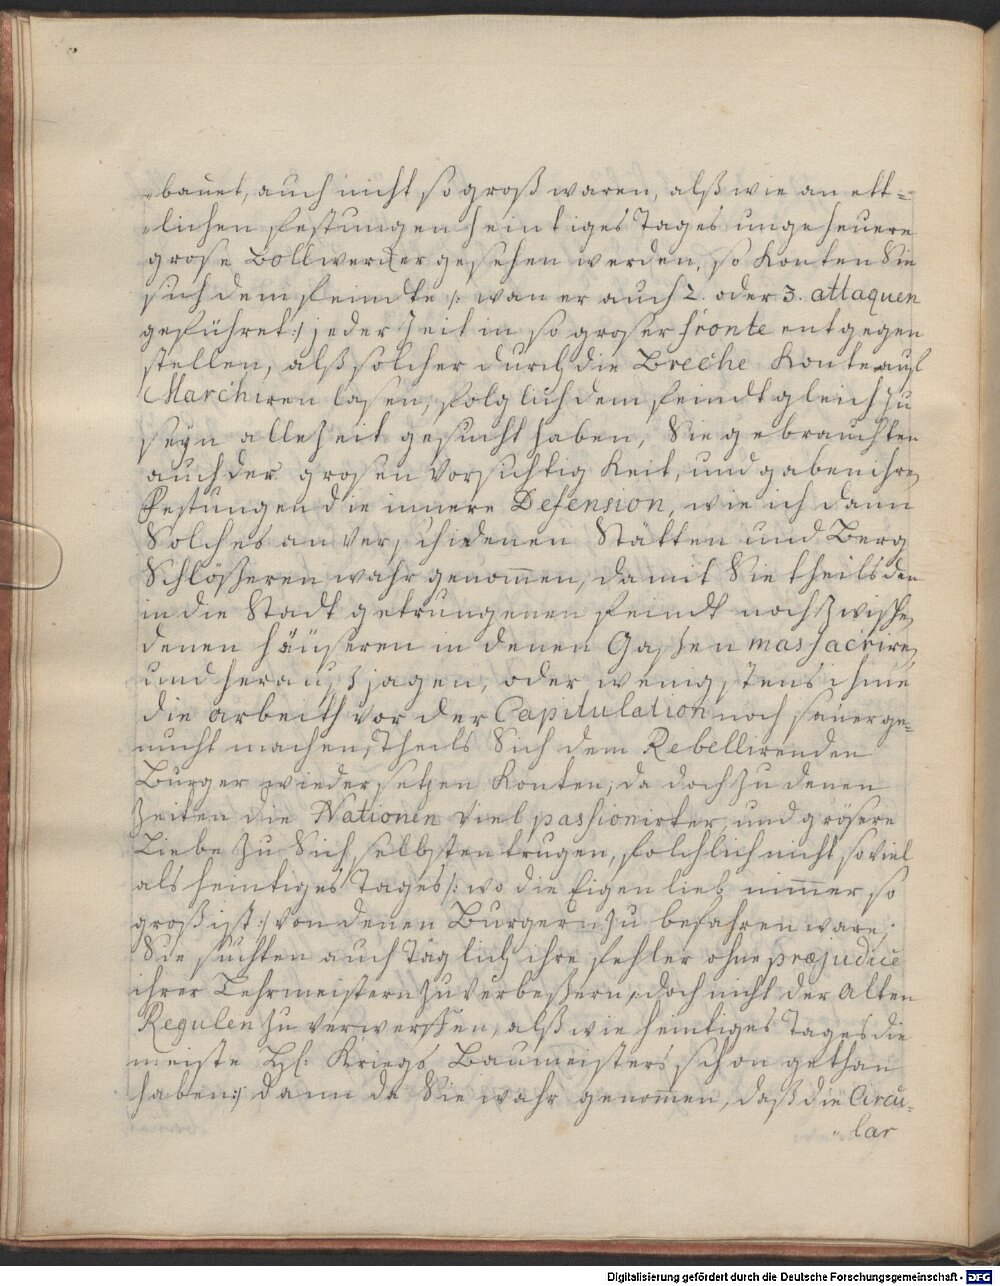 „bauet, auch nicht so groß waren, alß wie an ett=
„lichen Festungen heintiges Tages ungeheuere
grose Bollwercker gesehen werden, so konten Sie
sich dem Feindte /: wan er auch 2. oder 3. attaquen
geführet :/ jeder Zeit in so groser fronte entgegen
stellen, alß solcher durch die Breche konte auf
Marchiren lasen, folglich dem Feindt gleich zu
seyn alle Zeit gesucht haben, Sie gebrauchten
auch der grosen Vorsichtigkeit, und gaben ihren
Festungen die innere Defension, wie ich dann
Solches an verschidenen Stätten und Berg
Schlößeren wahr genommen, damit Sie theils den
in die Stadt getrungenen Feindt noch zwischen
denen häuseren in denen Gassen massacriren
und herauß jagen, oder wenigstens ihme
die arbeith vor der Capitulation noch sauer ge=
nucht machen, Theils Sich dem Rebellirenden
Burger wiedersetzen konten, da doch zu denen
Zeiten die Nationen viel passionirter und grösere
Liebe zu Sich selbsten trugen, folchlich nicht so viel
als heintiges Tages /: wo die Eigen lieb nimmer so
groß ist :/ von denen Burgern zu befahren ware;
Sie suchten auch Täglich ihre Fehler ohne præjudice
ihrer Lehrmeistern zu verbeßern /: doch nicht der alten
Regulen zu verwerffen, alß wie heintiges Tages die
meiste Hl: Kriegs Baumeisters schon gethan
haben :/ dann da Sie wahr genommen, daß die Circu=
„lar
Digitalisierung gefördert durch die Deutsche Forschungsgemeinschaft - DFG